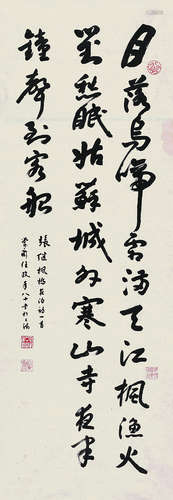 月落烏啼霜滿天江楓漁火
對愁眠姑蘇城外寒山寺夜半
鐘聲到客船
張继楓橋夜泊詩一首
任政年八十